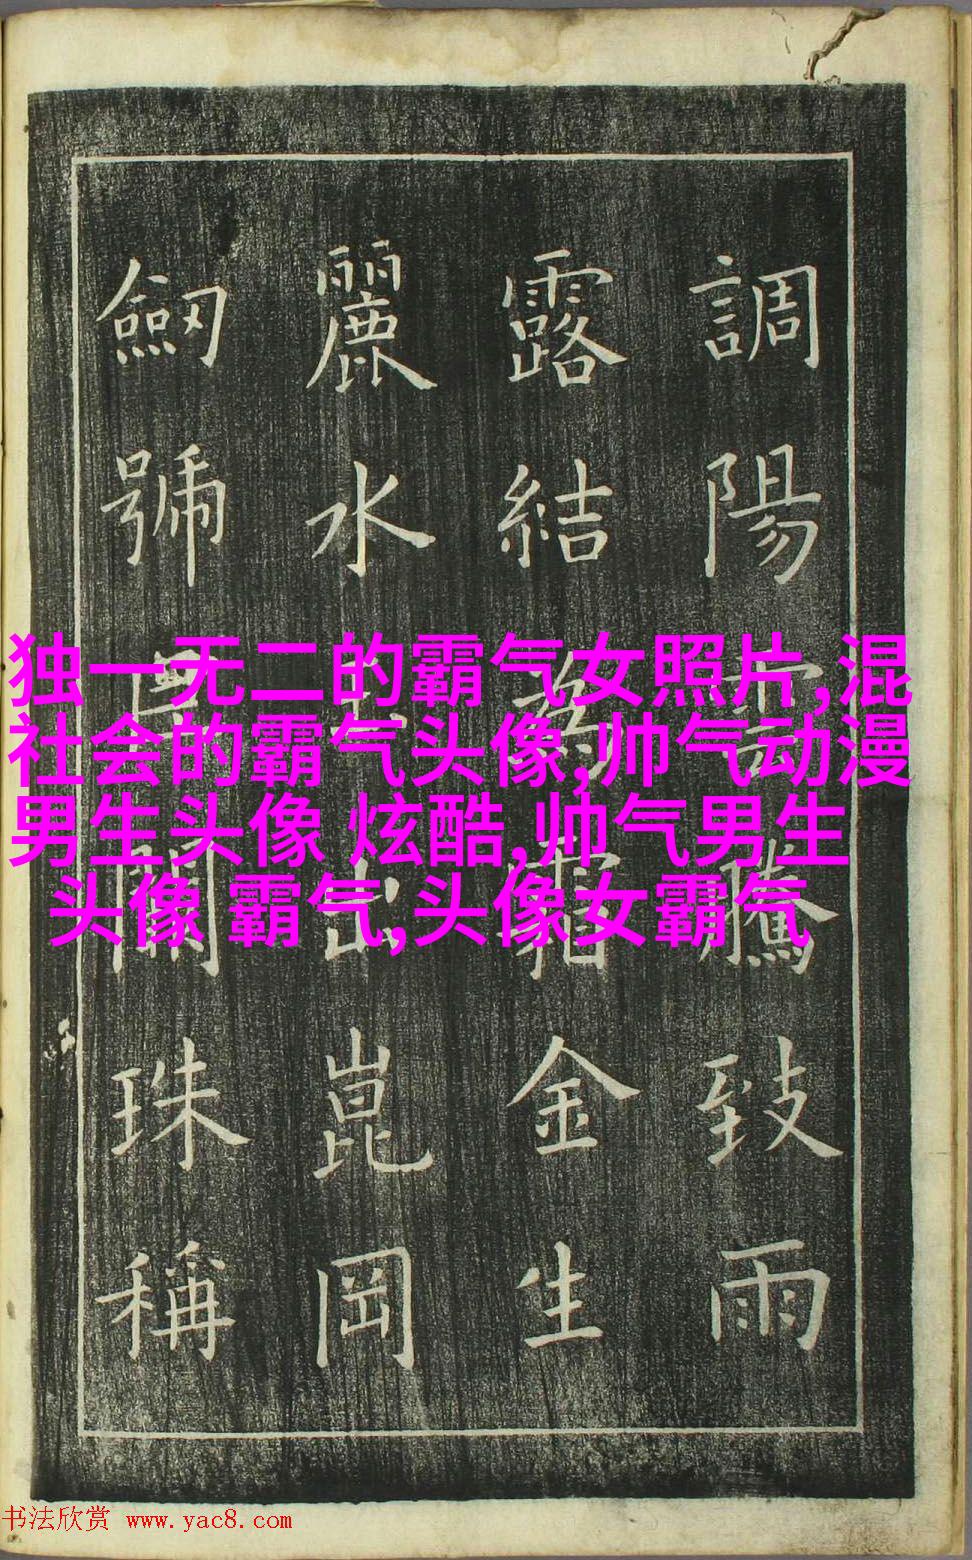 調陽雲騰致雨
露結為霜金生
麗水出崑岡
劒號巨闕珠稱
独一无二的霸气女照片,混
社会的霸气头像,帅气动漫
男生头像 炫酷,帅气男生
头像 霸气,头像女霸气
书法欣赏 www.yac8.com